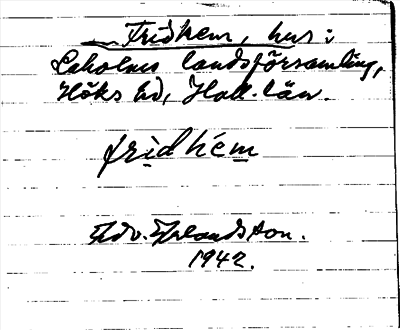 Fridhem, hus i
Laholms landsförsamling,
Höks hd, Hall. län.
fridhém
Edv. Erlandsson.
1942.